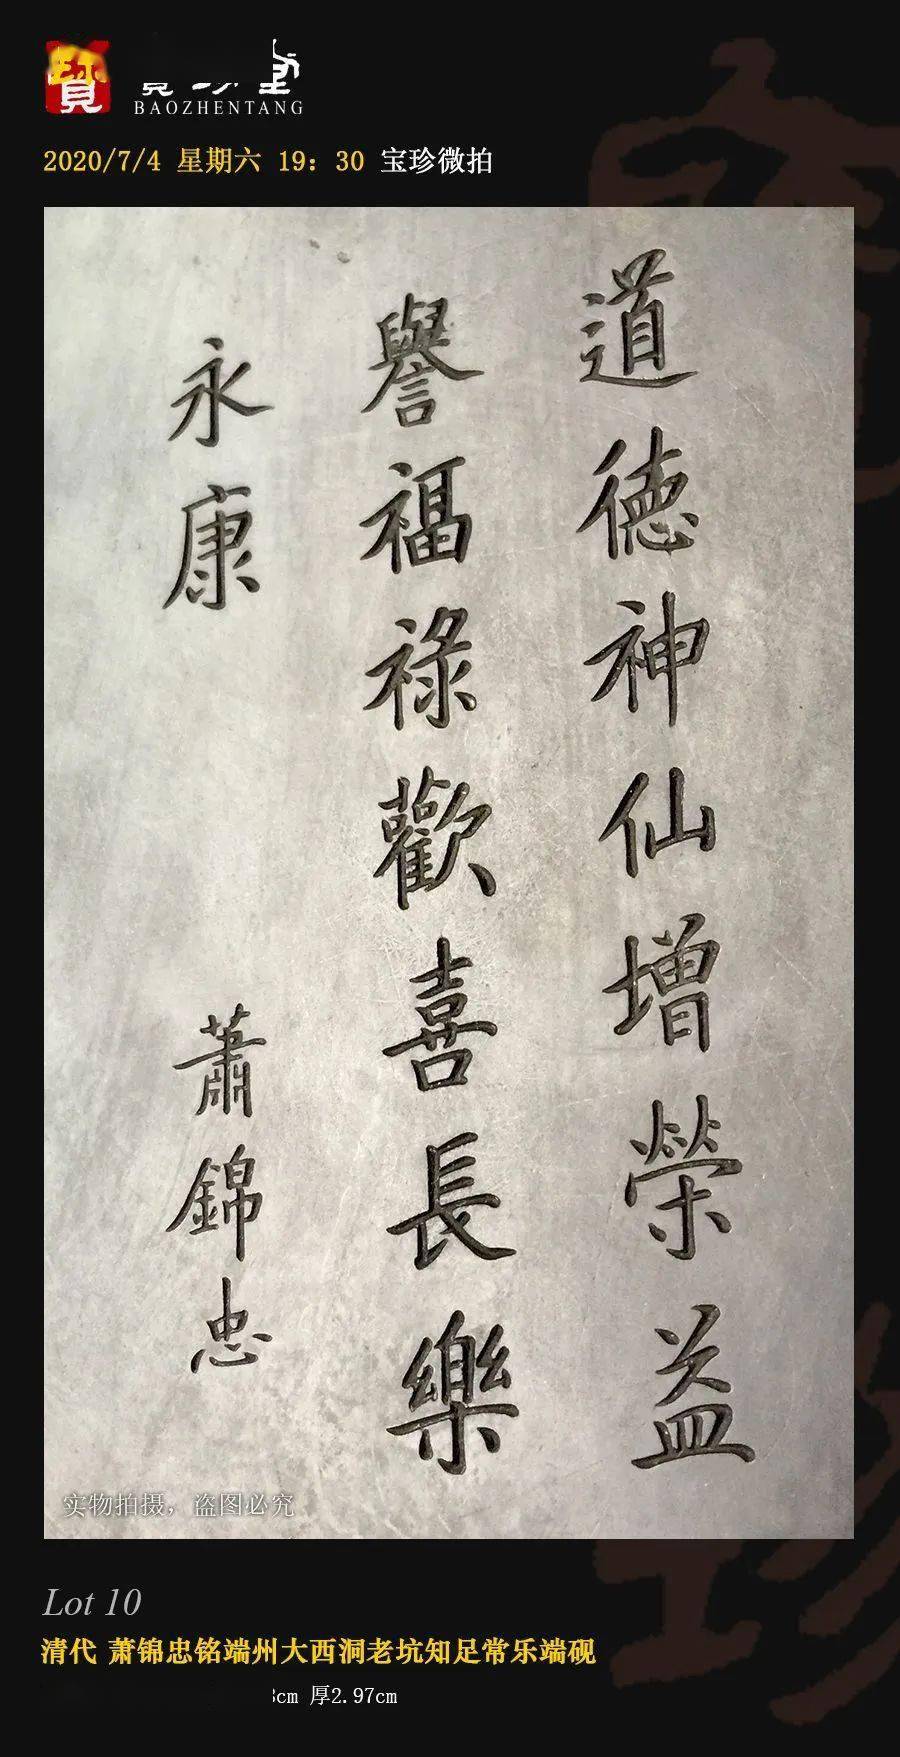 BAOZHENTANG
2020/7/4 星期六 19：30 宝珍微拍
道德神仙增榮益
譽福祿歡喜長樂
永康
蕭錦忠
实物拍摄，盗图必究
Lot 10
清代 萧锦忠铭端州大西洞老坑知足常乐端砚
cm 厚2.97cm